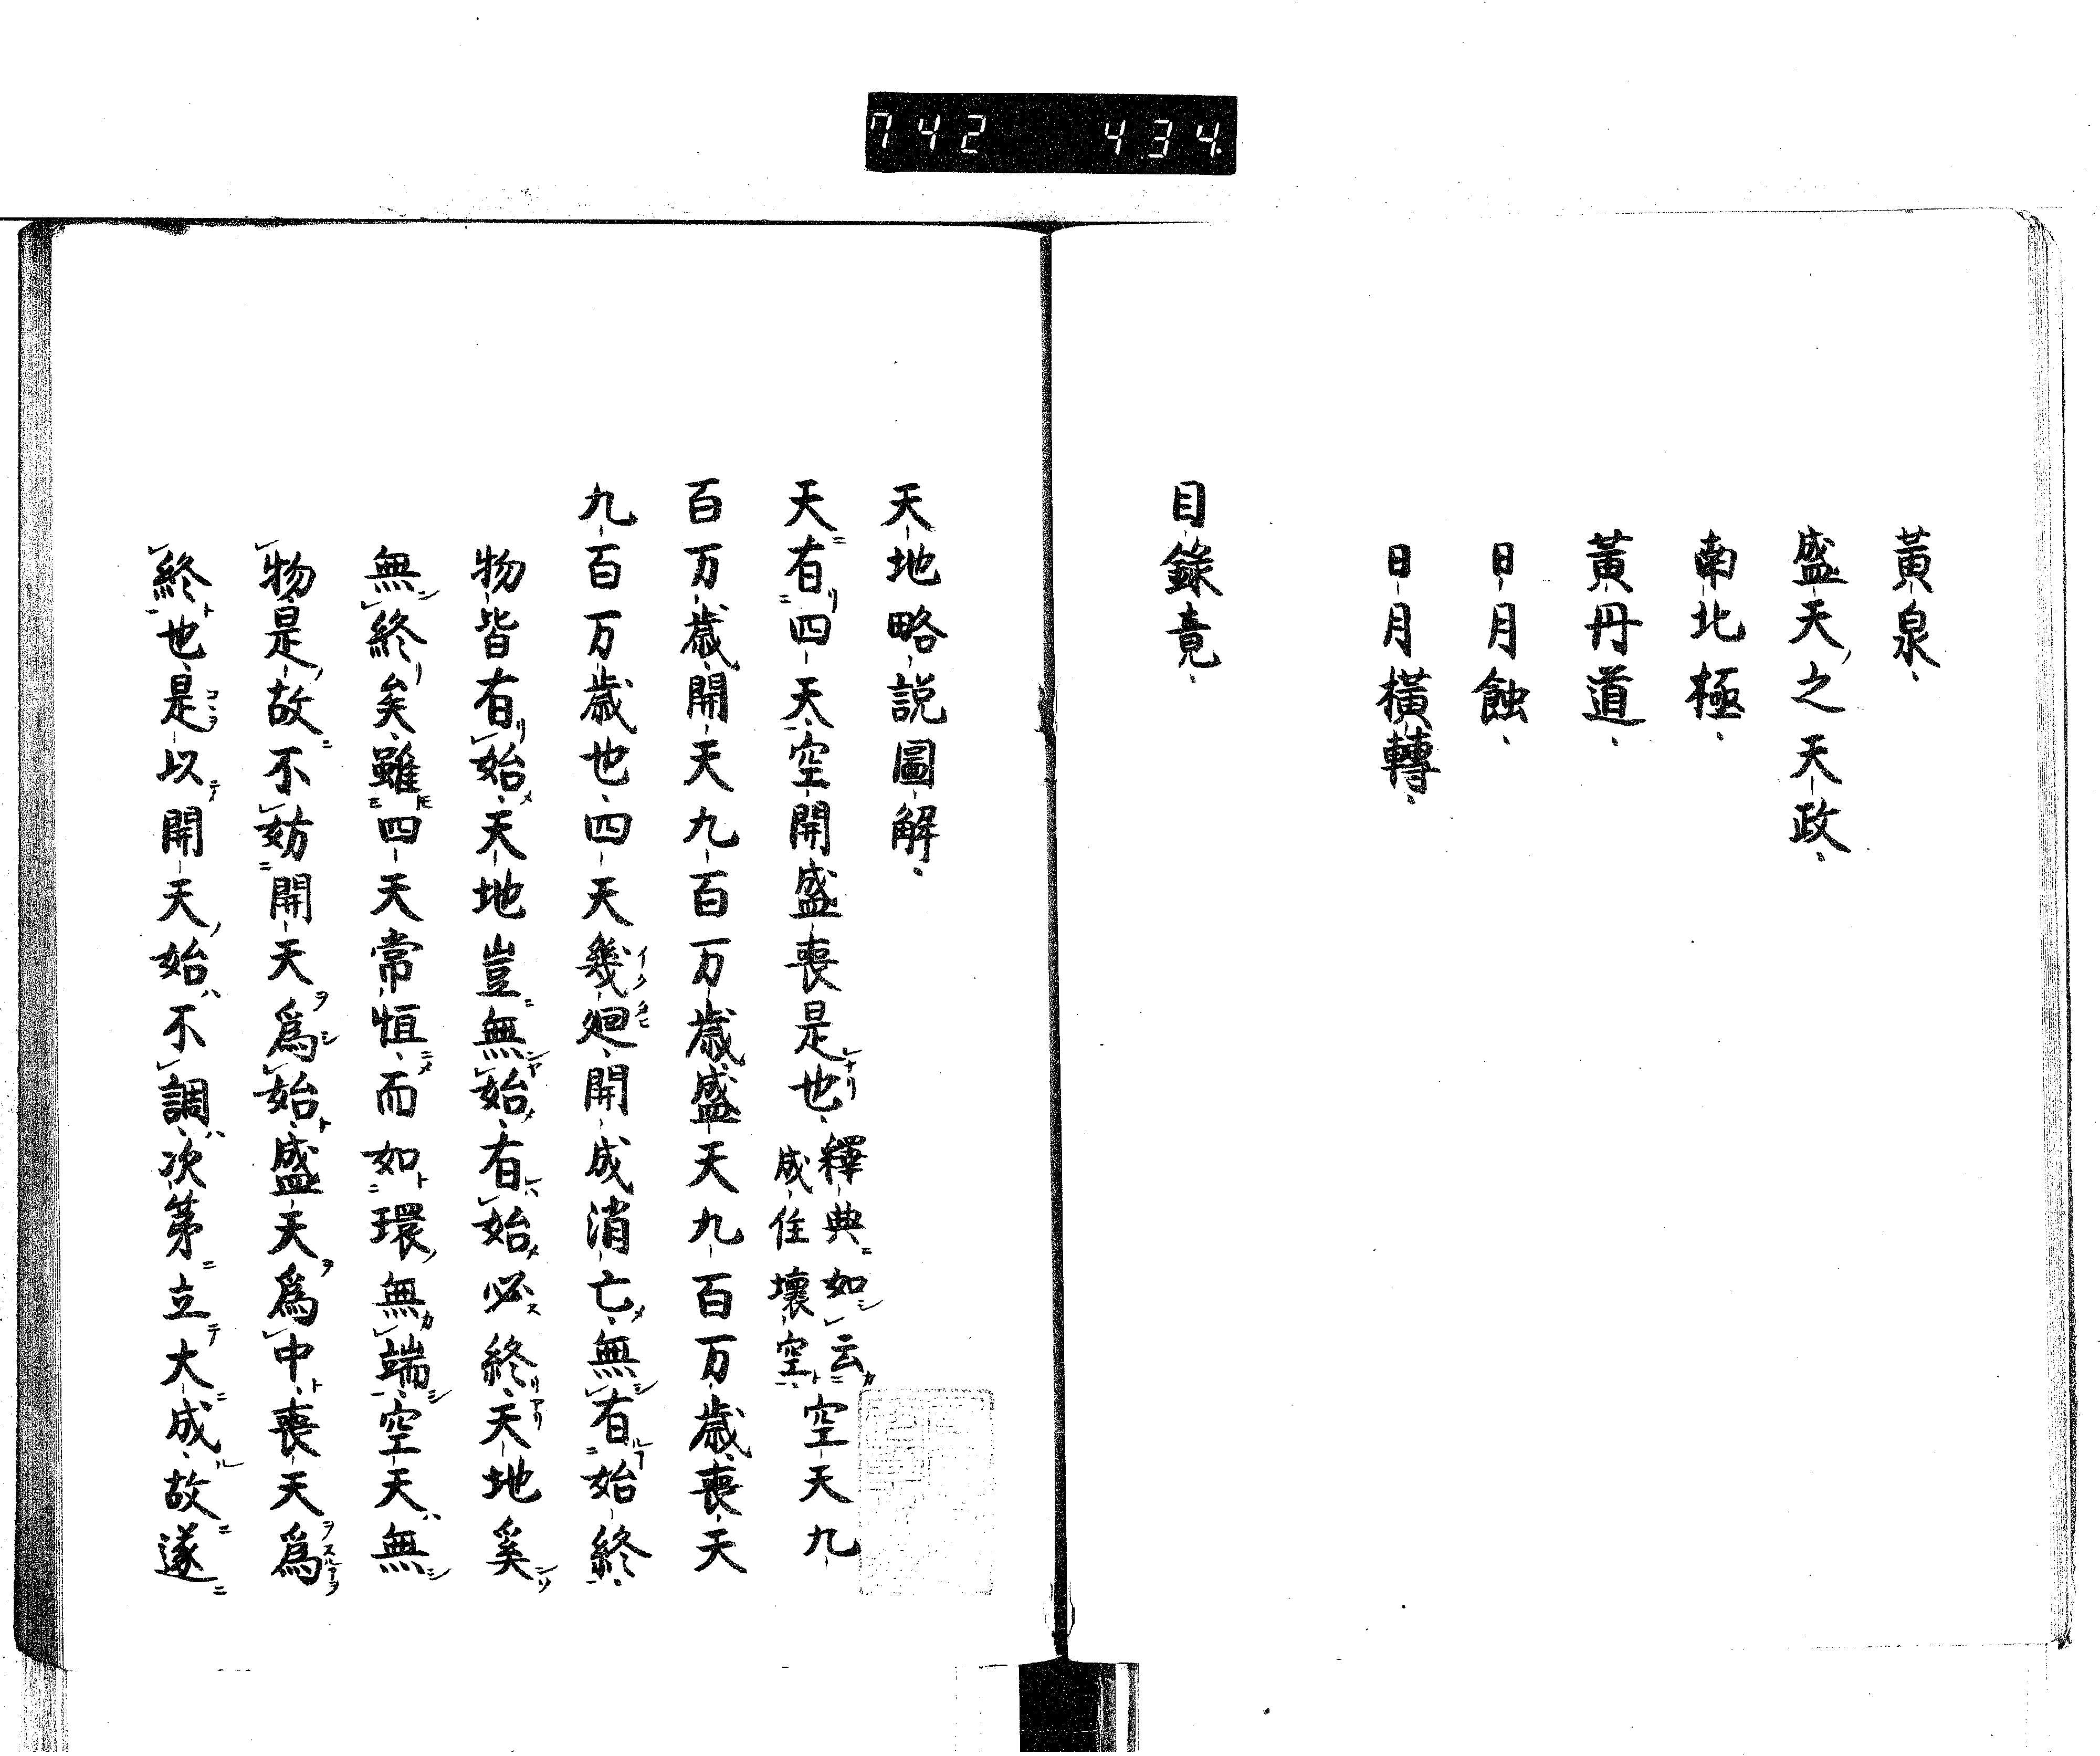 742 434
黃泉、
盛天ノ之天政、
南北極、
黃丹道、
日月蝕、
日月橫轉、
目錄竟、
天地略說圖解、
天有四天空開盛喪是也、釋典如云
成住壞空、空天九
百万歲、開天九百万歲、盛天九百万歲、喪天
九百万歲也、四天幾廻、開成消亡、無有始終、
物皆有始、天地豈無始、有始必終、天地奚
無終矣、雖四天常恒、而如環無端、空天無
物、是故不妨開天爲始、盛天爲中、喪天爲
終也、是以開天始不調、次第立大成、故遂